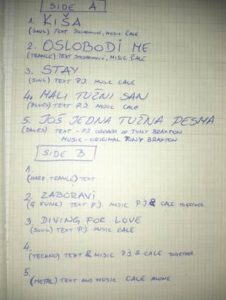 SIDE A
1. KIŠA
(SOUL) TEXT MUSIC CALE
2. OSLOBODI ME
(TRANCE) TEXT MUSIC CALE
3. STAY
(SOUL) TEXT P.J. MUSIC CALE
4. MALI TUŽNI SAN
(BLUES) TEXT P.J. MUSIC CALE
5. JOŠ JEDNA TUŽNA PESMA
(DANCE) TEXT - P.J. OF TONY BRAXTON
MUSIC - ORIGINAL TONY BRAXTON
SIDE B
1.
(HARD TRANCE) TEXT
2. ZABORAVI
(G FUNK) TEXT P.J. MUSIC P.J. & CALE TOGETHER
3. DIVING FOR LOVE
(SOUL) TEXT P.J. MUSIC CALE
4.
(TECHNO) TEXT & MUSIC P.J. & CALE TOGETHER
5.
(METAL) TEXT AND MUSIC CALE ALONE